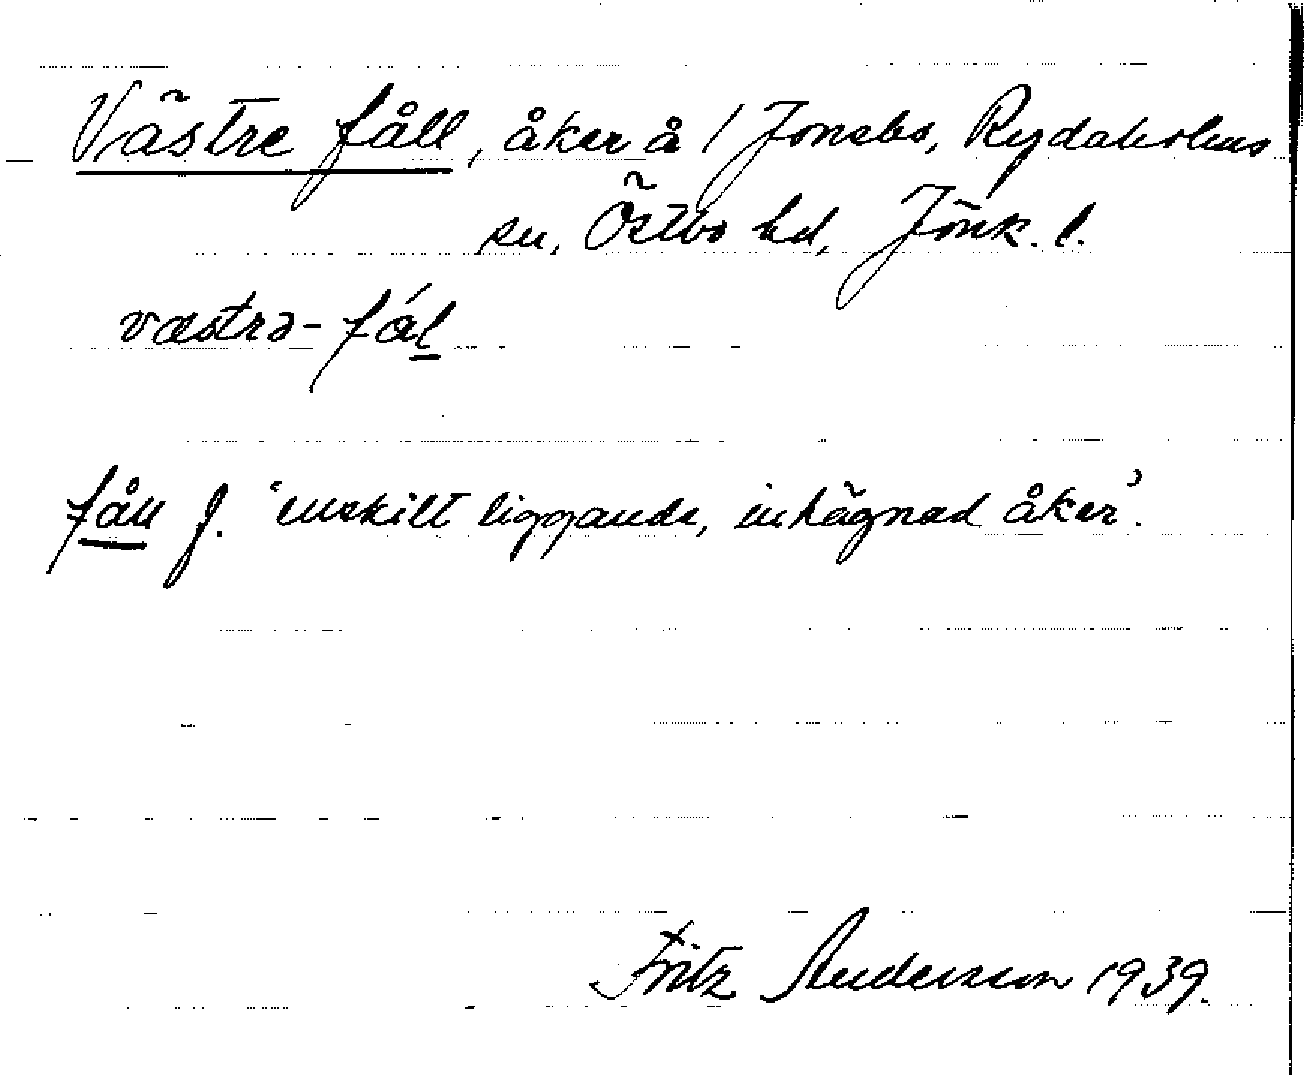 Västre fåll, åker å 1 Jonsbo, Rydaholms
sn, Östbo hd, Jönk. l.
væstrə-fål
fåll f. 'enskilt liggande, inhägnad åker'.
Fritz Andersson 1939.